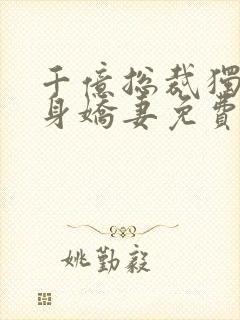 千億總裁獨
身嬌妻免費
姚勤毅